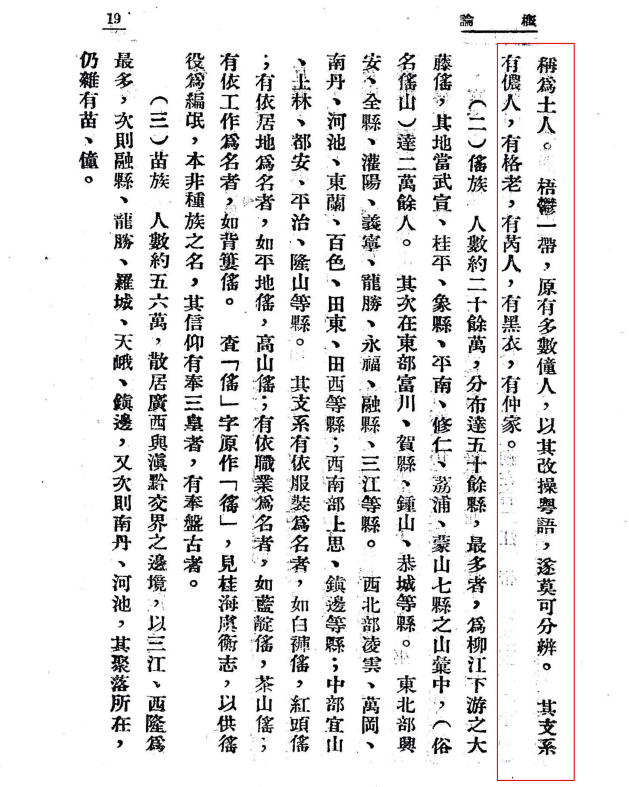 19
概論
稱爲土人。梧鬱一帶，原有多數僮人，以其改操粵語，遂莫可分辨。其支系
有儂人，有格老，有芮人，有黑衣，有仲家。
（二）傜族　人數約二十餘萬，分布達五十餘縣，最多者，爲柳江下游之大
藤傜，其地當武宣、桂平、象縣、平南、修仁、荔浦、蒙山七縣之山彙中，（俗
名傜山）達二萬餘人。其次在東部富川、賀縣、鍾山、恭城等縣。東北部興
安、全縣、灌陽、義寧、龍勝、永福、融縣、三江等縣。西北部凌雲、萬岡、
南丹、河池、東蘭、百色、田東、田西等縣；西南部上思、鎮邊等縣；中部宜山
、上林、都安、平治、隆山等縣。其支系有依服裝爲名者，如白褲傜，紅頭傜
；有依居地爲名者，如平地傜，高山傜；有依職業爲名者，如藍靛傜，茶山傜；
有依工作爲名者，如背簍傜。查「傜」字原作「徭」，見桂海虞衡志，以供徭
役爲編氓，本非種族之名，其信仰有奉三皇者，有奉盤古者。
（三）苗族　人數約五六萬，散居廣西與滇黔交界之邊境，以三江、西隆爲
最多，次則融縣、龍勝、羅城、天峨、鎮邊，又次則南丹、河池，其聚落所在，
仍雜有苗、僮。